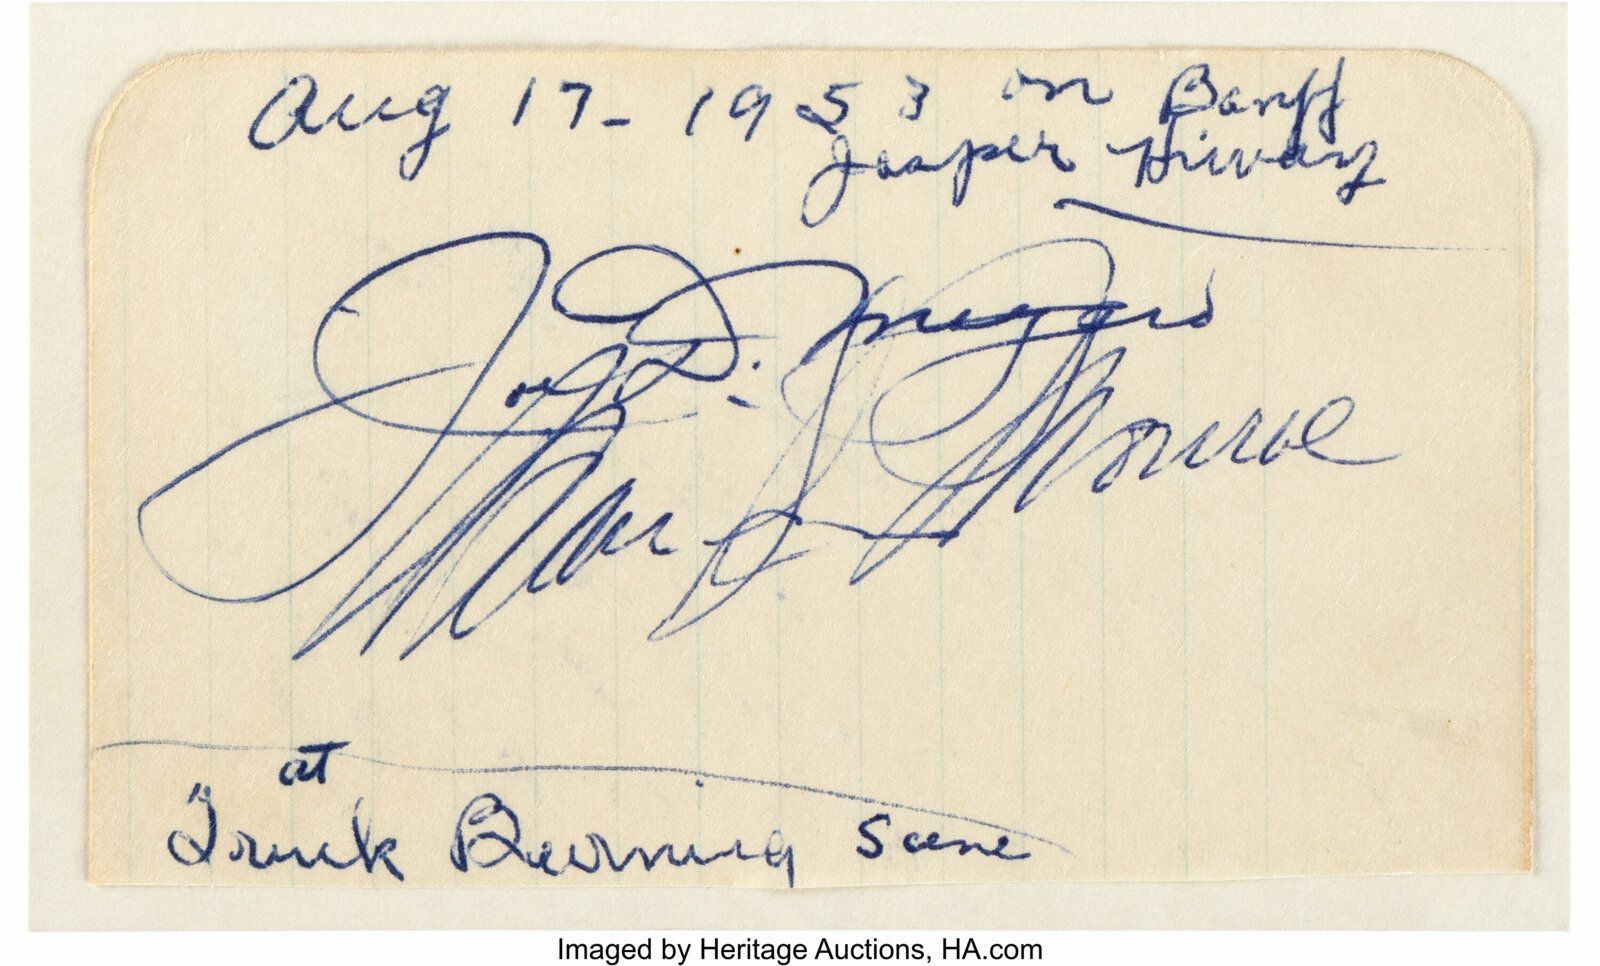 Aug 17- 1953 on Banff
Jasper Hiway
Joe DiMaggio
Marilyn Monroe
at
Truck Burning Scene
Imaged by Heritage Auctions, HA.com